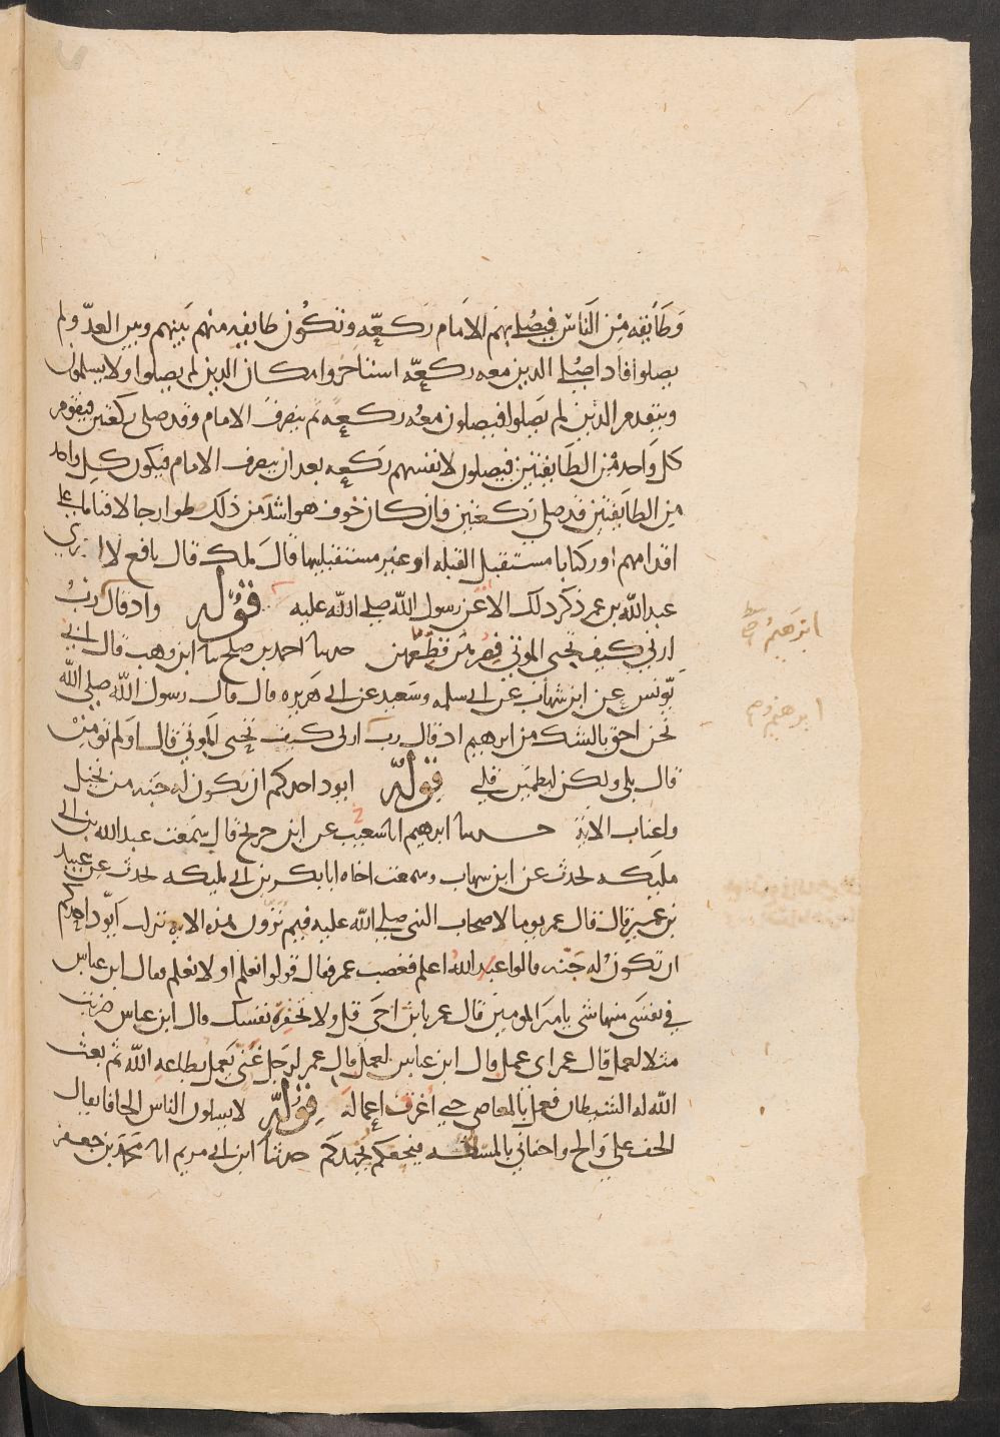 وطائفه من الناس فيصلي بهم الامام ركعه وتكون طايفه منهم بينهم وبين العدو لم
يصلوا فاذا صلي الذين معه ركعه استاخروا مكان الذين لم يصلوا ولا يسلمون
ويتقدم الذين لم يصلوا فيصلون معه ركعه ثم ينصرف الامام وقد صلى ركعتين فيقوم
كل واحد من الطايفتين فيصلون لانفسهم ركعه بعد ان ينصرف الامام فيكون كل واحد
من الطايفتين قد صلى ركعتين فان كان خوف هو اشد من ذلك صلوا رجالا قياما على
اقدامهم او ركبانا مستقبل القبله او غير مستقبليها قال ملك قال نافع لا اري
عبد الله بن عمر ذكر ذلك الا عن رسول الله صلي الله عليه قوله واذ قال رب
ارني كيف تحيي الموتي فصرهن قطعهن حدثنا احمد بن صلح ثنا ابن وهب قال اخبرني
يونس عن ابن شهاب عن ابي سلمه وسعيد عن ابي هريره قال قال رسول الله صلي الله
نحن احق بالشك من ابرهيم اذ قال رب ارني كيف تحيي الموتي قال اولم تومن
قال بلي ولكن ليطمين قلبي قوله ايود احدكم ان تكون له جنه من نخيل
واعناب الايه حدثنا ابرهيم انا شعيب عن ابن جريج قال سمعت عبد الله بن ابي
مليكه يحدث عن ابن شهاب وسمعت اخاه ابا بكر بن ابي مليكه يحدث عن عبيد
بن عمير قال قال عمر يوما لاصحاب النبي صلي الله عليه فيم ترون هذه الايه نزلت ايود احدكم
ان تكون له جنه قالوا الله اعلم فغضب عمر فقال قولوا نعلم او لا نعلم فقال ابن عباس
في نفسي منها شي يا امير المومنين قال عمر يا بن اخي قل ولا تحقر نفسك قال ابن عباس ضربت
مثلا لعمل قال عمر اي عمل قال ابن عباس لعمل قال عمر لرجل غني يعمل بطاعه الله ثم بعث
الله له الشيطان فعمل بالمعاصي حتي اغرق اعماله قوله لا يسالون الناس الحافا يقال
الحف علي والح واحفاني بالمسئله فيحفكم يجهدكم حدثنا ابن ابي مريم انا محمد بن جعفر
ابرهيم
ابرهيم